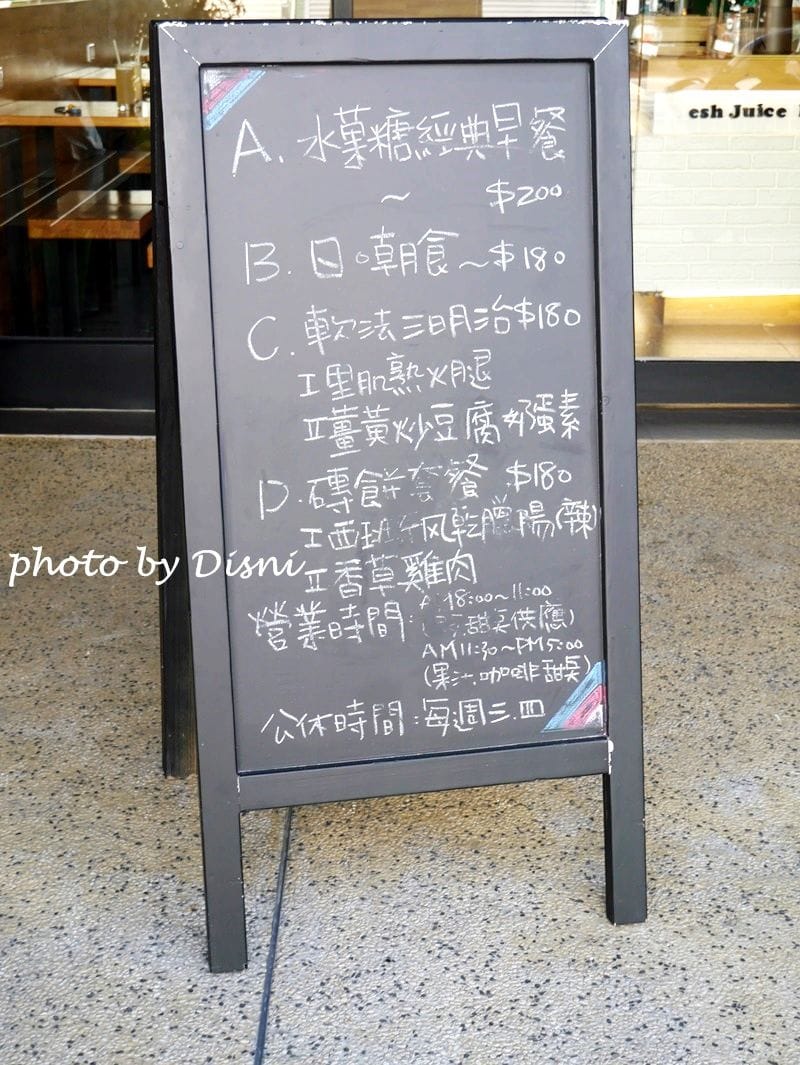 esh Juice
A. 水菓糖經典早餐
~ $200
B. 日。嘲食~$180
C. 軟法三明治$180
I里肌熟火腿
II薑黃炒豆腐 奶蛋素
D. 磚餅套餐 $180
I西班牙风乾臘陽(辣)
II香草雞肉
photo by Disni
營業時間:
8:00~11:00
甜點供應)
AM11:30~PM5:00
(果汁.咖啡甜點)
公休時間:每週三.四